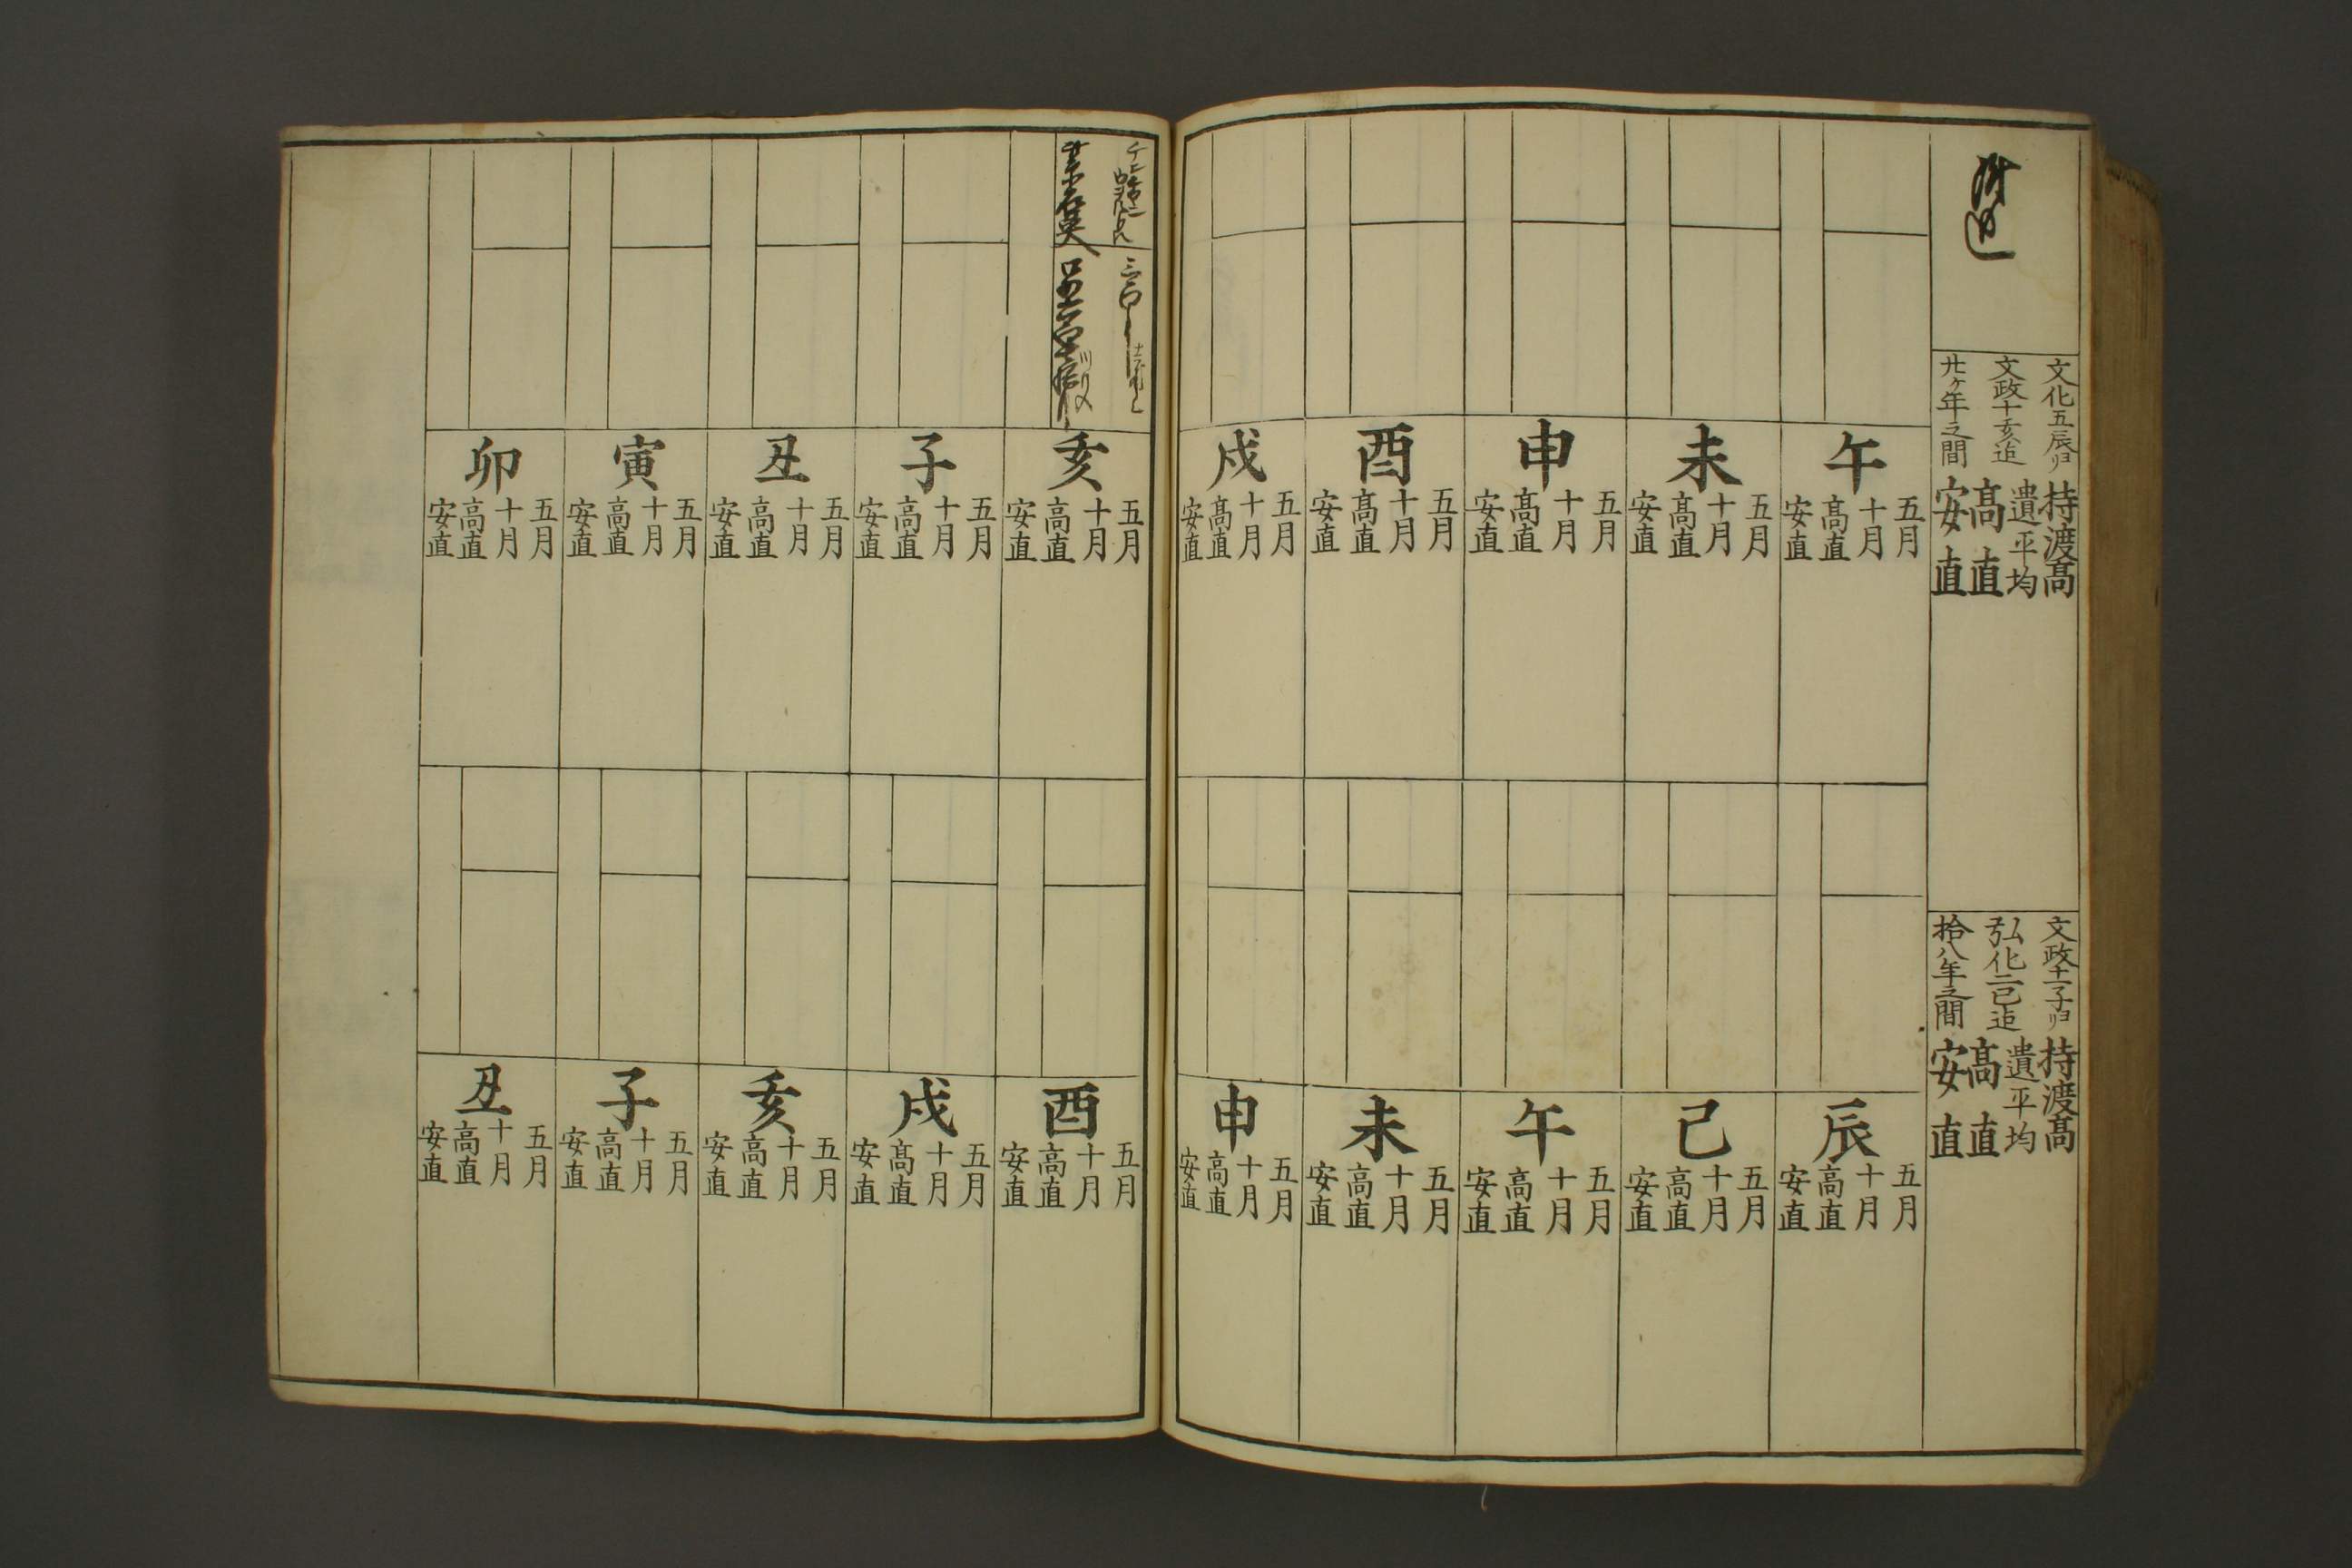 文化五辰ヨリ
文政十亥迠
廿ケ年之間
持渡髙
遺平均
髙直
安直
午
五月
十月
高直
安直
未
五月
十月
高直
安直
申
五月
十月
髙直
安直
酉
五月
十月
髙直
安直
戌
五月
十月
髙直
安直
文政十一子ヨリ
弘化二巳迠
拾八年之間
持渡髙
遺平均
髙直
安直
辰
五月
十月
高直
安直
巳
五月
十月
高直
安直
午
五月
十月
高直
安直
未
五月
十月
高直
安直
申
五月
十月
高直
安直
亥
五月
十月
高直
安直
子
五月
十月
高直
安直
丑
五月
十月
高直
安直
寅
五月
十月
高直
安直
卯
五月
十月
高直
安直
酉
五月
十月
高直
安直
戌
五月
十月
髙直
安直
亥
五月
十月
高直
安直
子
五月
十月
高直
安直
丑
五月
十月
高直
安直